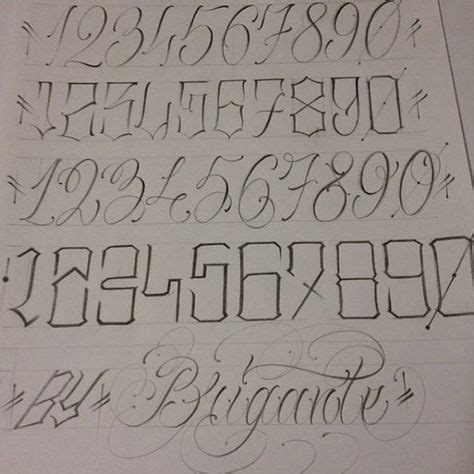 1234567890
1234567890
1234567890
1234567890
BY Brigante